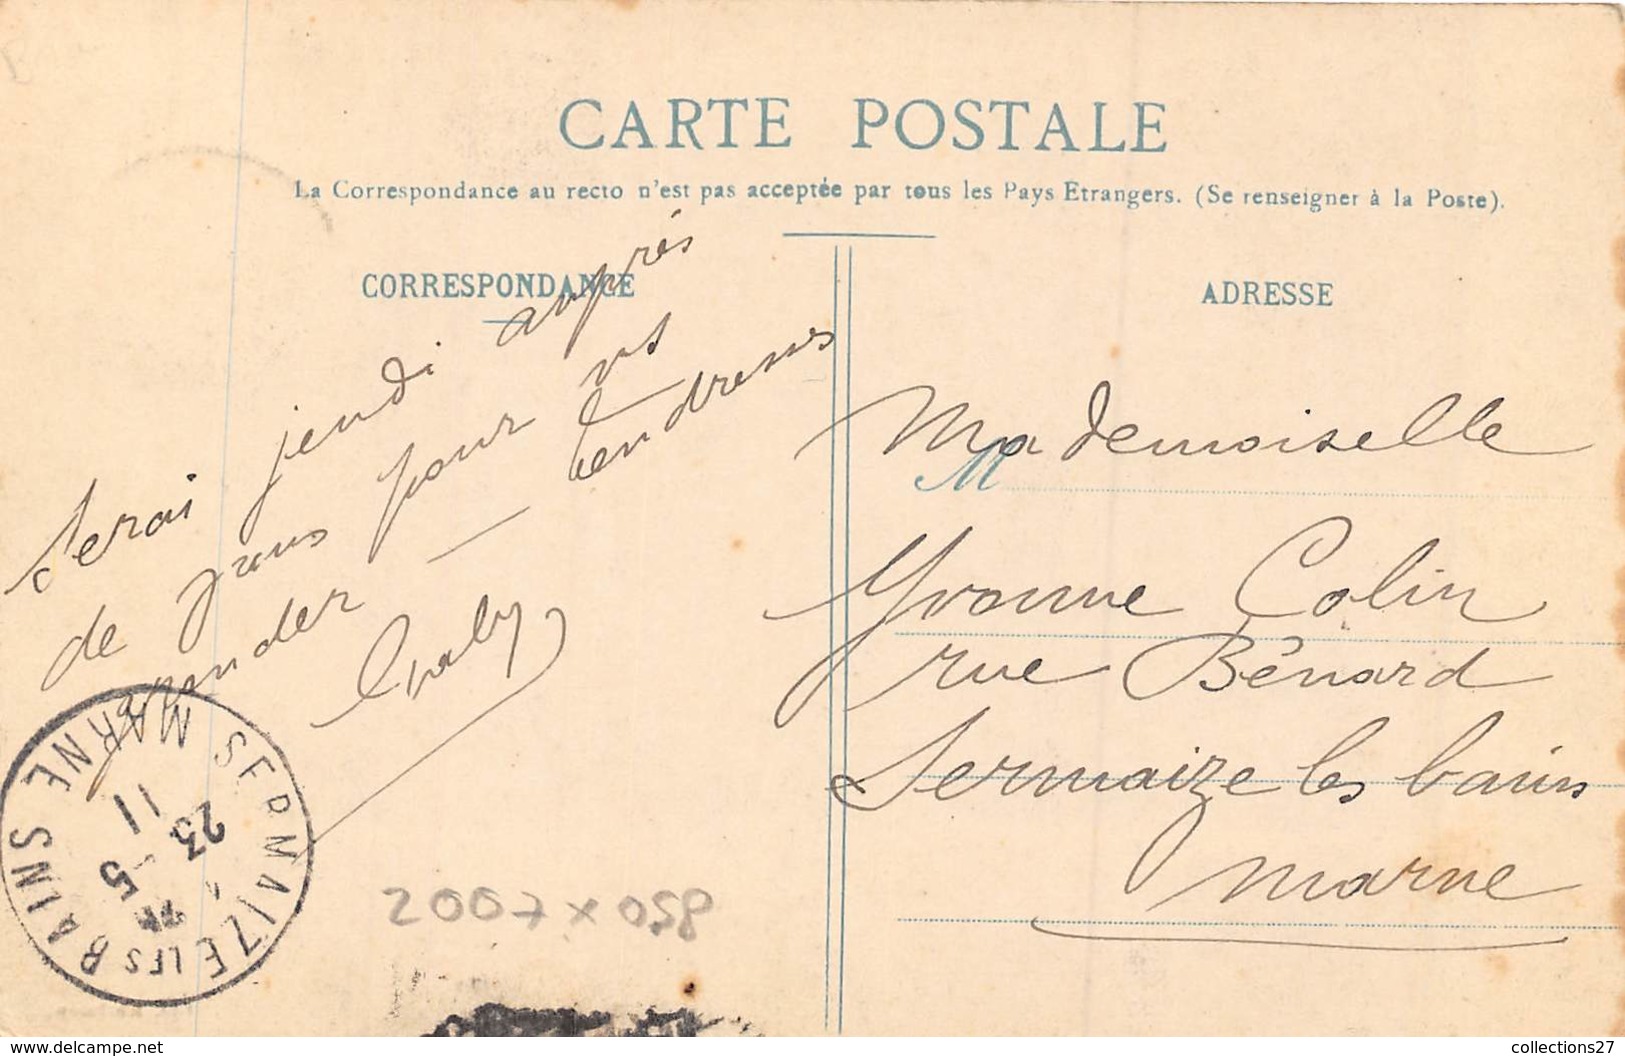 CARTE POSTALE
La Correspondance au recto n'est pas acceptée par tous les Pays Étrangers. (Se renseigner à la Poste).
CORRESPONDANCE
Serai jeudi auprès
de pour vs
— tendresses
Gaby
ADRESSE
M
Mademoiselle
Yvonne Colin
rue Bénard
Sermaize les bains
Marne
SERMAIZE LES BAINS
MARNE
23 - 5
11
2007 x 058
www.delcampe.net
collections27